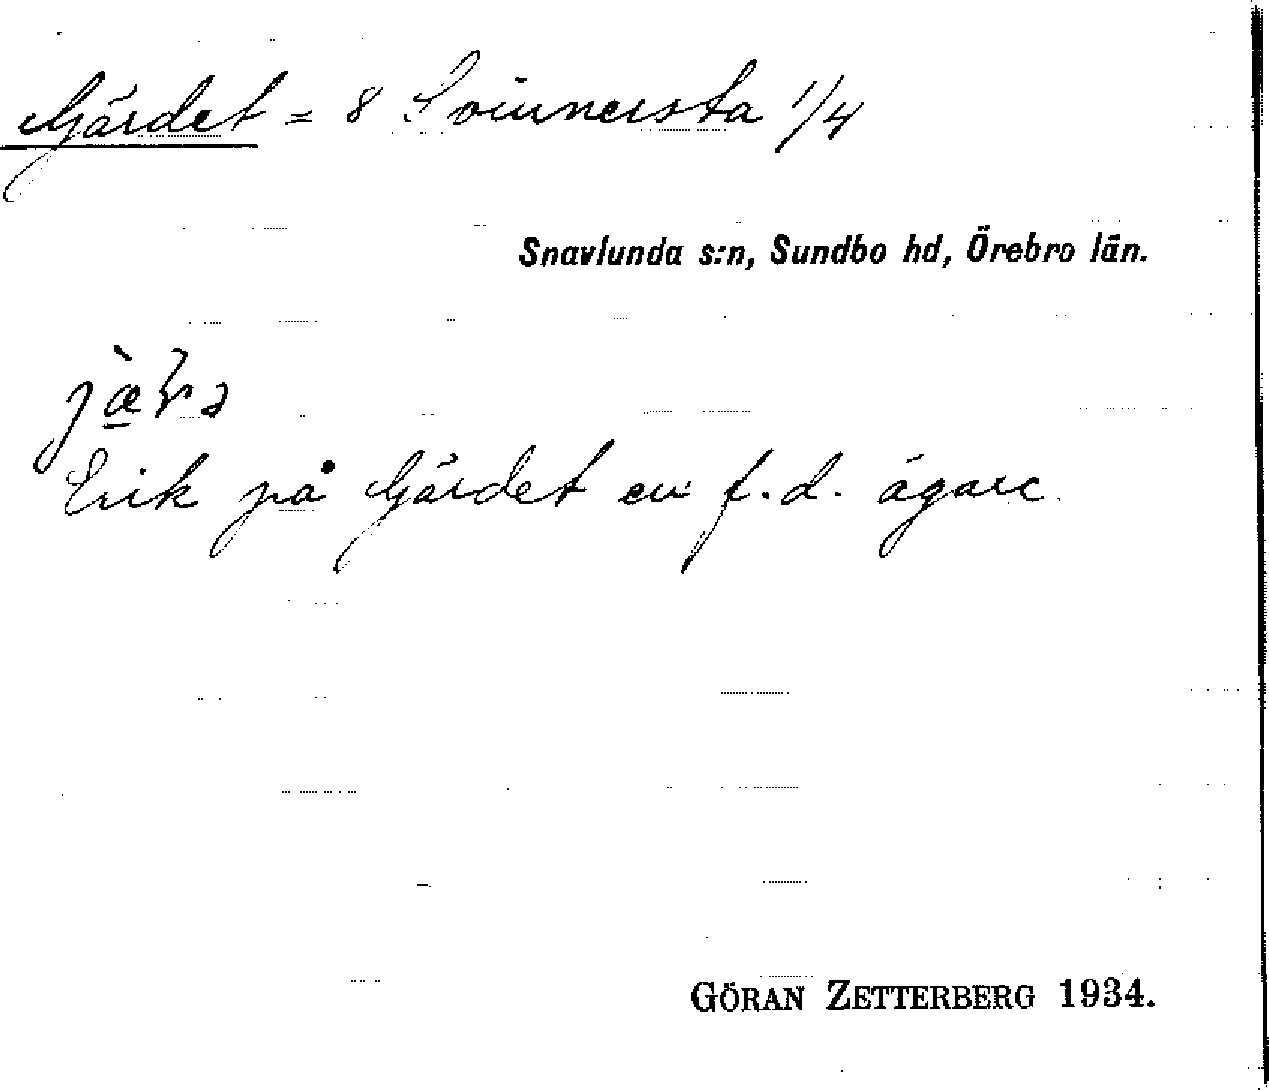 Gärdet = 8 Svinnersta 1/4
Snavlunda s:n, Sundbo hd, Örebro län.
Erik på Gärdet en f.d. ägare
GÖRAN ZETTERBERG 1934.